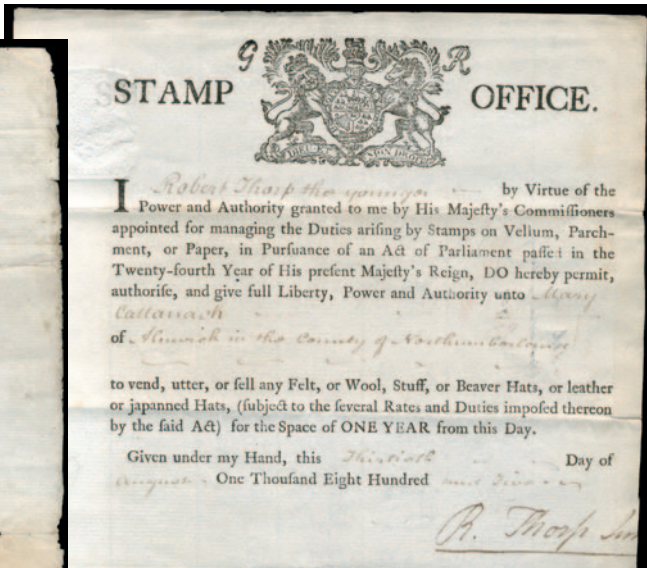 G R
STAMP OFFICE.
DIEU ET MON DROIT
I Robert Thorp the younger by Virtue of the
Power and Authority granted to me by His Majeſty's Commiſſioners
appointed for managing the Duties ariſing by Stamps on Vellum, Parch-
ment, or Paper, in Purſuance of an Act of Parliament paſſed in the
Twenty-fourth Year of His preſent Majeſty's Reign, DO hereby permit,
authoriſe, and give full Liberty, Power and Authority unto Mary
Callanach
of Alnwick in the County of Northumberland
to vend, utter, or ſell any Felt, or Wool, Stuff, or Beaver Hats, or leather
or japanned Hats, (ſubject to the ſeveral Rates and Duties impoſed thereon
by the ſaid Act) for the Space of ONE YEAR from this Day.
Given under my Hand, this Thirtieth Day of
August One Thouſand Eight Hundred and Two
R. Thorp Jun